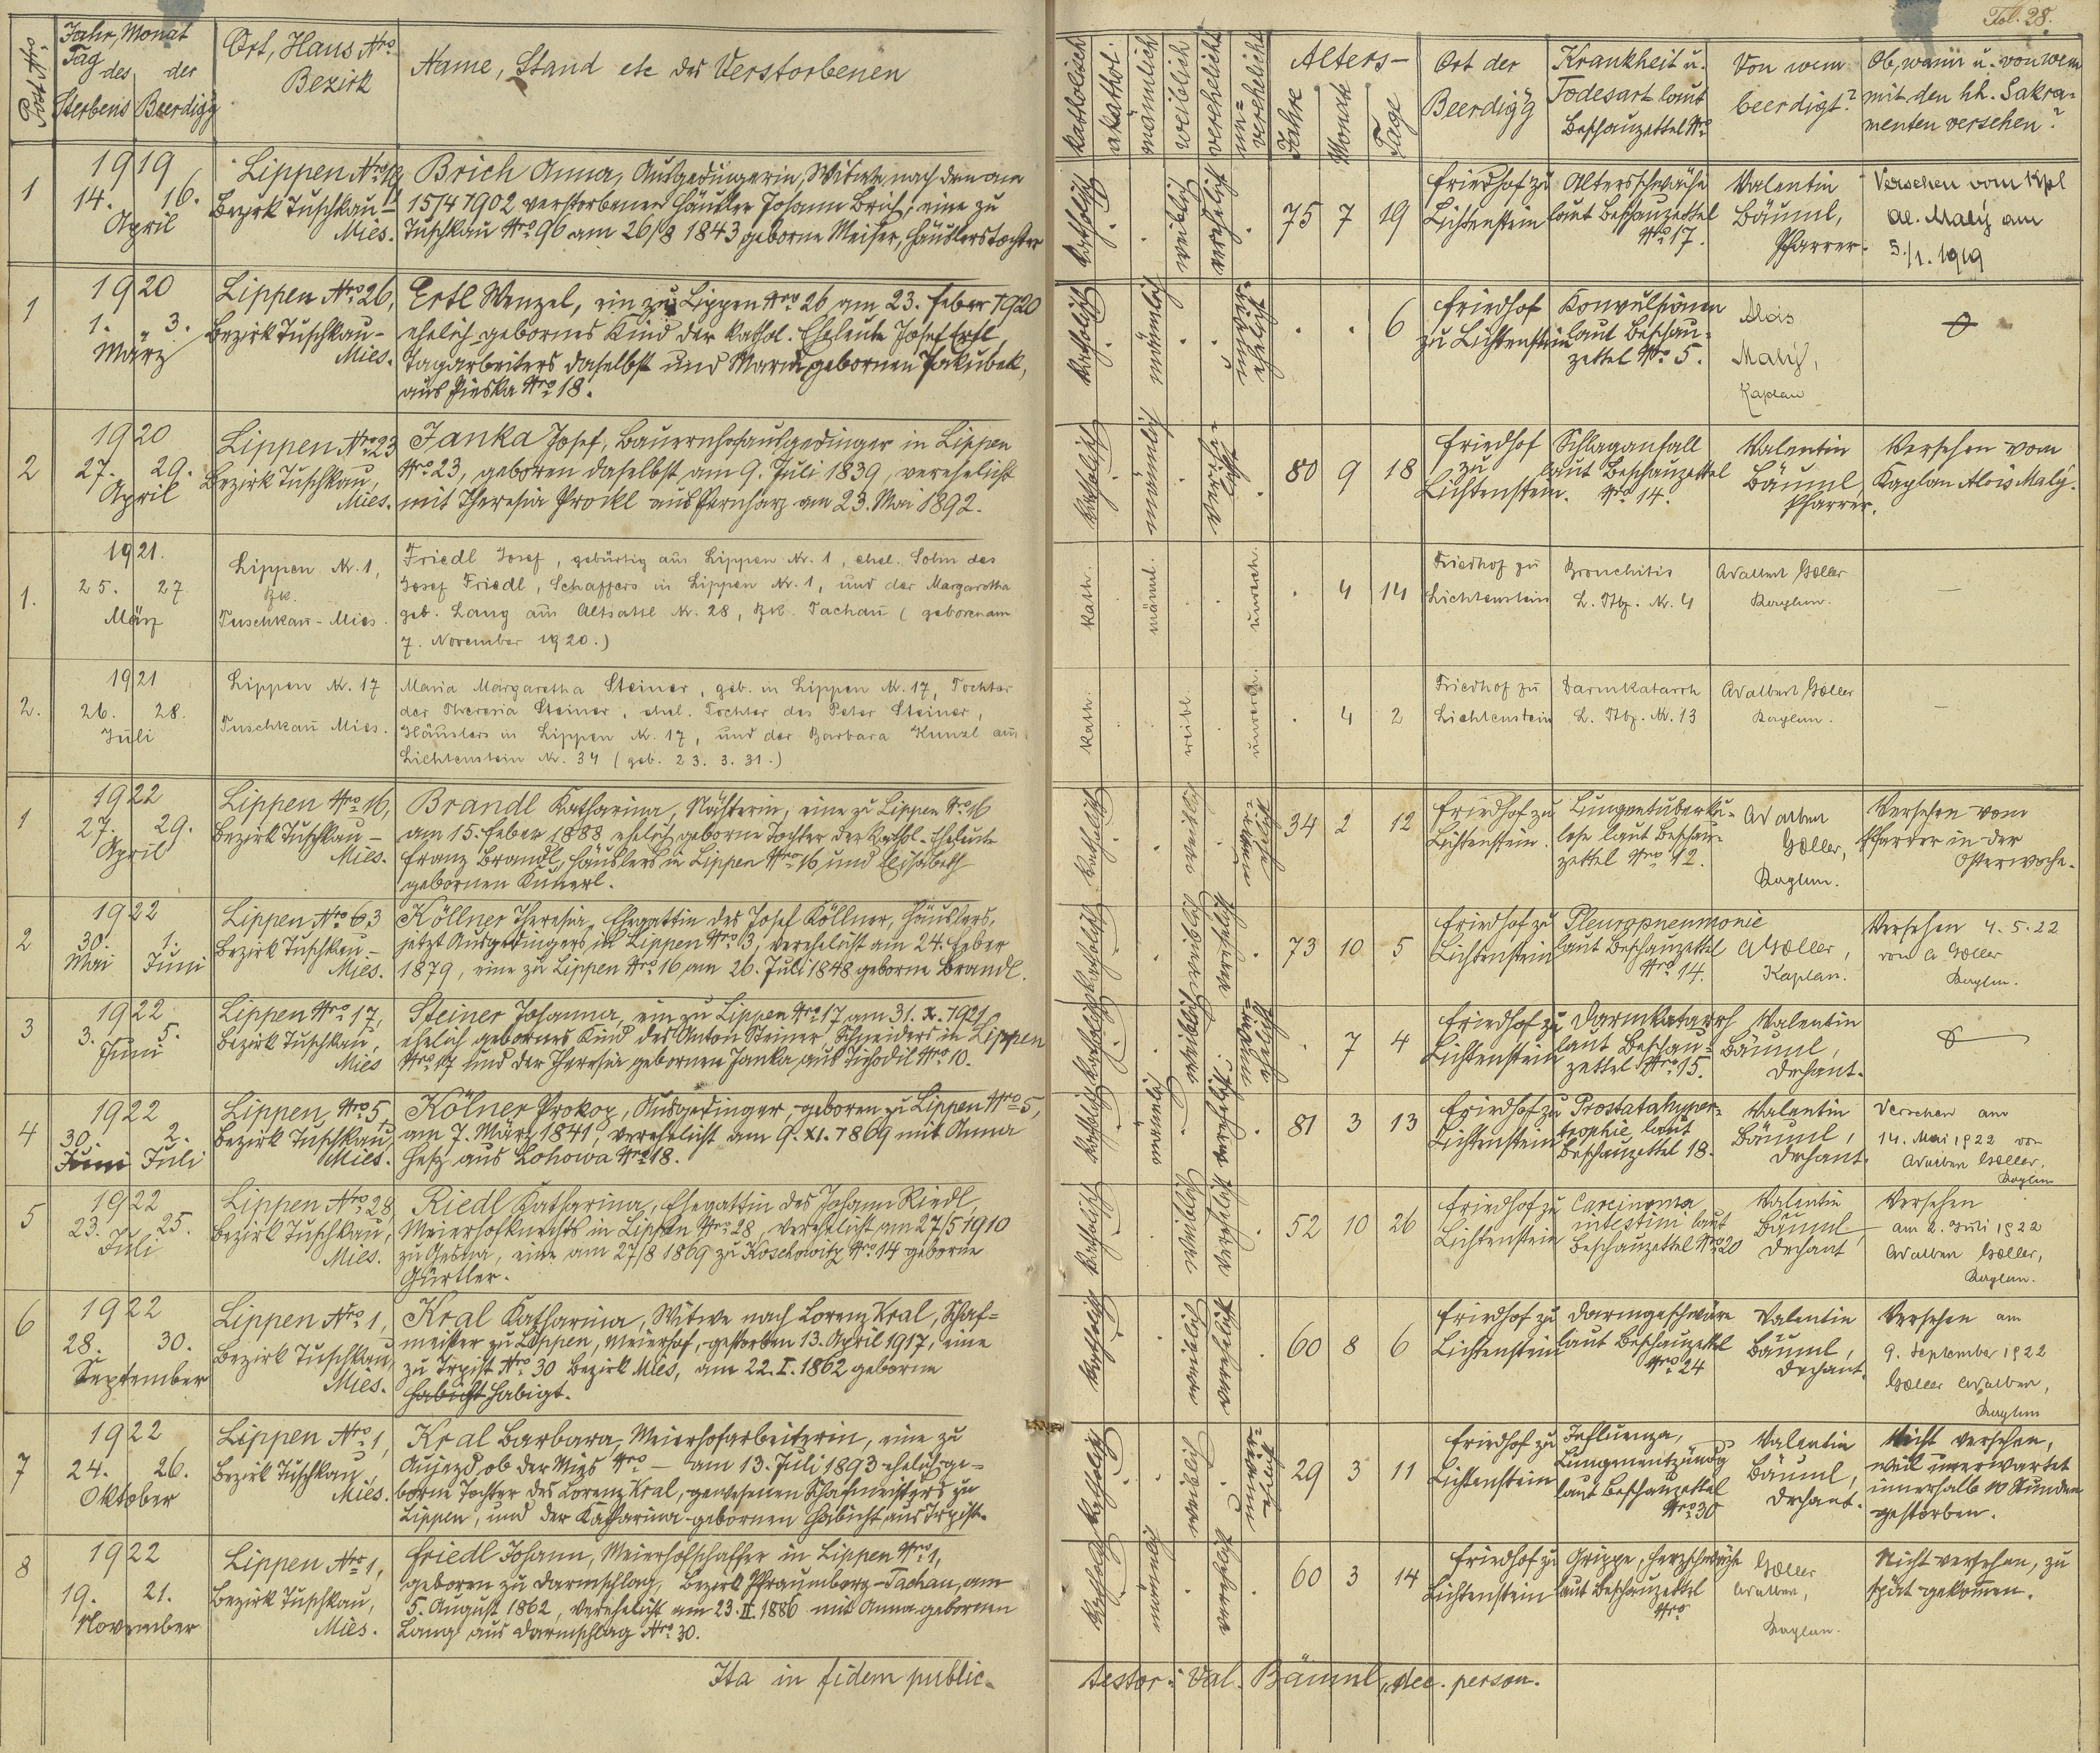 Fol. 28.
Post Nro
Jahr, Monat
Tag
des der
Sterbens Beerdigg
Ort, Haus Nro
Bezirk
Name, Stand etc des Verstorbenen
katholisch
akathol.
männlich
weiblich
verehelicht
un=
verehelicht
Alters-
Jahre
Monate
Tage
Ort der
Beerdigg
Krankheit u.
Todesart laut
Beschauzettel Nro
Von wem
beerdigt?
Ob, wann u. von wem
mit den hh. Sakra-
menten versehen?
1
1919
14. 16.
April
Lippen Nro
Bezirk Tuschkau-
Mies.
Brich Anna, Ausgedingerin, Witwe nach dem am
15/4 1902 verstorbenen Häusler Johann Brich, eine zu
Tuschkau Nro 96 am 26/8 1843 geborne Meiser, Häuslerstochter
katholisch
weiblich
verehelicht
75 7 19
Friedhof zu
Lichtenstein
Altersschwäche
laut Beschauzettel
Nro 17.
Valentin
Bäuml,
Pfarrer.
Versehen vom Kpl
Al. Malý am
5./1. 1919
1
1920
1. 3.
März
Lippen Nro 26,
Bezirk Tuschkau-
Mies.
Ertl Wenzel, ein zu Lippen Nro 26 am 23. Feber 1920
ehelich gebornes Kind der kathol. Eheleute Josef Ertl,
Tagarbeiters daselbst und Maria gebornen Jakubek,
aus Piwska Nro 18.
katholisch
männlich
unver=
ehelicht
. . 6
Friedhof
zu Lichtenstein
Konvulsionen
laut Beschau-
zettel Nro 5.
Alois
Malý,
Kaplan
2
1920
27. 29.
April
Lippen Nro 23
Bezirk Tuschkau,
Mies.
Janka Josef, Bauernhofausgedinger in Lippen
Nro 23, geboren daselbst am 9. Juli 1839, verehelicht
mit Theresia Prockl aus Pernharz am 23. Mai 1892.
katholisch
männlich
verehe=
licht
80 9 18
Friedhof
zu
Lichtenstein.
Schlaganfall
laut Beschauzettel
Nro 14.
Valentin
Bäuml,
Pfarrer.
Versehen vom
Kaplan Alois Malý.
1.
1921.
25. 27
März
Lippen Nr. 1,
Bzk.
Tuschkau-Mies.
Friedl Josef, gebürtig aus Lippen Nr. 1, ehel. Sohn des
Josef Friedl, Schaffers in Lippen Nr. 1, und der Margaretha
geb. Lang aus Altsattl Nr. 28, Bzk. Tachau (geboren am
7. November 1920.)
kath.
männl.
unverh.
. 4 14
Friedhof zu
Lichtenstein
Bronchitis
L. Tbz. Nr. 4
Adalbert Goeller
Kaplan.
—
2.
1921
26. 28.
Juli
Lippen Nr. 17
Tuschkau Mies.
Maria Margaretha Steiner, geb. in Lippen Nr. 17, Tochter
der Theresia Steiner, ehel. Tochter des Peter Steiner,
Häuslers in Lippen Nr. 17, und der Barbara Kunzl aus
Lichtenstein Nr. 34 (geb. 23. 3. 31.)
kath.
weibl.
unverh.
. 4 2
Friedhof zu
Lichtenstein
Darmkatarrh
L. Tbz. Nr. 13
Adalbert Goeller
Kaplan.
—
1
1922
27. 29.
April
Lippen Nro 16,
Bezirk Tuschkau-
Mies.
Brandl Katharina, Nähterin, eine zu Lippen Nro 16
am 15. Feber 1888 ehelich geborne Tochter der kathol. Eheleute
Franz Brandl, Häuslers in Lippen Nro 16 und Elisabeth
gebornen Kunerl.
katholisch
weiblich
unver=
ehelicht
34 2 12
Friedhof zu
Lichtenstein.
Lungentuberku-
lose laut Beschau-
zettel Nro 12.
Adalbert
Goeller,
Kaplan.
Versehen vom
Pfarrer in der
Osterwoche.
2
1922
30. 1.
Mai Juni
Lippen Nro 3
Bezirk Tuschkau-
Mies.
Köllner Theresia, Ehegattin des Josef Köllner, Häuslers,
jetzt Ausgedingers in Lippen Nro 3, verehelicht am 24. Feber
1879, eine zu Lippen Nro 16 am 26. Juli 1848 geborne Brandl.
katholisch
weiblich
verehelicht
73 10 5
Friedhof zu
Lichtenstein
Pleuropneumonie
laut Beschauzettel
Nro 14.
A Goeller,
Kaplan.
Versehen 4. 5. 22
von A. Goeller
Kaplan.
3
1922
3. 5.
Juni
Lippen Nro 17,
Bezirk Tuschkau,
Mies
Steiner Johanna, ein zu Lippen Nro 17 am 31. X. 1921
ehelich gebornes Kind des Anton Steiner, Schneiders in Lippen
Nro 17 und der Theresia gebornen Janka aus Tichodil Nro 10.
katholisch
weiblich
unver=
ehelicht
. 7 4
Friedhof zu
Lichtenstein
Darmkatarrh
laut Beschau-
zettel Nro 15.
Valentin
Bäuml,
Dechant.
4
1922
30. 2.
Juni Juli
Lippen Nro 5,
Bezirk Tuschkau,
Mies.
Kölner Prokop, Ausgedinger, geboren zu Lippen Nro 5,
am 7. März 1841, verehelicht am 9. XI. 1869 mit Anna
Hesz aus Lohowa Nro 18.
katholisch
männlich
verehelicht
81 3 13
Friedhof zu
Lichtenstein
Prostatahyper-
trophie laut
Beschauzettel 18.
Valentin
Bäuml,
Dechant.
Versehen am
14. Mai 1922 von
Adalbert Goeller,
Kaplan
5
1922
23. 25.
Juli
Lippen Nro 28
Bezirk Tuschkau,
Mies.
Riedl Katharina, Ehegattin des Johann Riedl,
Meierhofknechts in Lippen Nro 28, verehelicht am 27/5 1910
zu Gesna, eine am 27/8 1869 zu Koschowitz Nro 14 geborne
Gürtler.
katholisch
weiblich
verehelicht
52 10 26
Friedhof zu
Lichtenstein
Carcinoma
intestini laut
Beschauzettel Nro 20
Valentin
Bäuml,
Dechant
Versehen
am 2. Juli 1922
Adalbert Goeller,
Kaplan.
6
1922
28. 30.
September
Lippen Nro 1,
Bezirk Tuschkau,
Mies.
Kral Katharina, Witwe nach Lorenz Kral, Schaf=
meister zu Lippen, Meierhof, gestorben 13. April 1917, eine
zu Trpist Nro 30 Bezirk Mies, am 22. I. 1862 geborne
Habicht Habigt.
katholisch
weiblich
verehelicht
60 8 6
Friedhof zu
Lichtenstein
Darmgeschwüre
laut Beschauzettel
Nro 24
Valentin
Bäuml,
Dechant.
Versehen am
9. September 1922
Goeller Adalbert,
Kaplan
7
1922
24. 26.
Oktober
Lippen Nro 1,
Bezirk Tuschkau,
Mies.
Kral Barbara, Meierhofarbeiterin, eine zu
Aujezd ob der Mies Nro — am 13. Juli 1893 ehelich ge-
borne Tochter des Lorenz Kral, gewesenen Schafmeisters zu
Lippen, und der Katharina gebornen Habicht aus Trpist.
katholisch
weiblich
unver=
ehelicht
29 3 11
Friedhof zu
Lichtenstein
Influenza,
Lungenentzündg
laut Beschauzettel
Nro 30
Valentin
Bäuml,
Dechant.
Nicht versehen,
weil unerwartet
innerhalb 10 Stunden
gestorben.
8
1922
19. 21.
November
Lippen Nro 1,
Bezirk Tuschkau,
Mies.
Friedl Johann, Meierhofschaffer in Lippen Nro 1,
geboren zu Darmschlag, Bezirk Pfraumberg-Tachau, am
5. August 1862, verehelicht am 23. II. 1886 mit Anna gebornen
Lang aus Darmschlag Nro 30.
katholisch
männlich
verehelicht
60 3 14
Friedhof zu
Lichtenstein
Grippe, Herzschwäche
laut Beschauzettel
Nro
Goeller
Adalbert,
Kaplan.
Nicht versehen, zu
spät gekommen.
Ita in fidem public. testor: Val. Bäuml, dec. person.